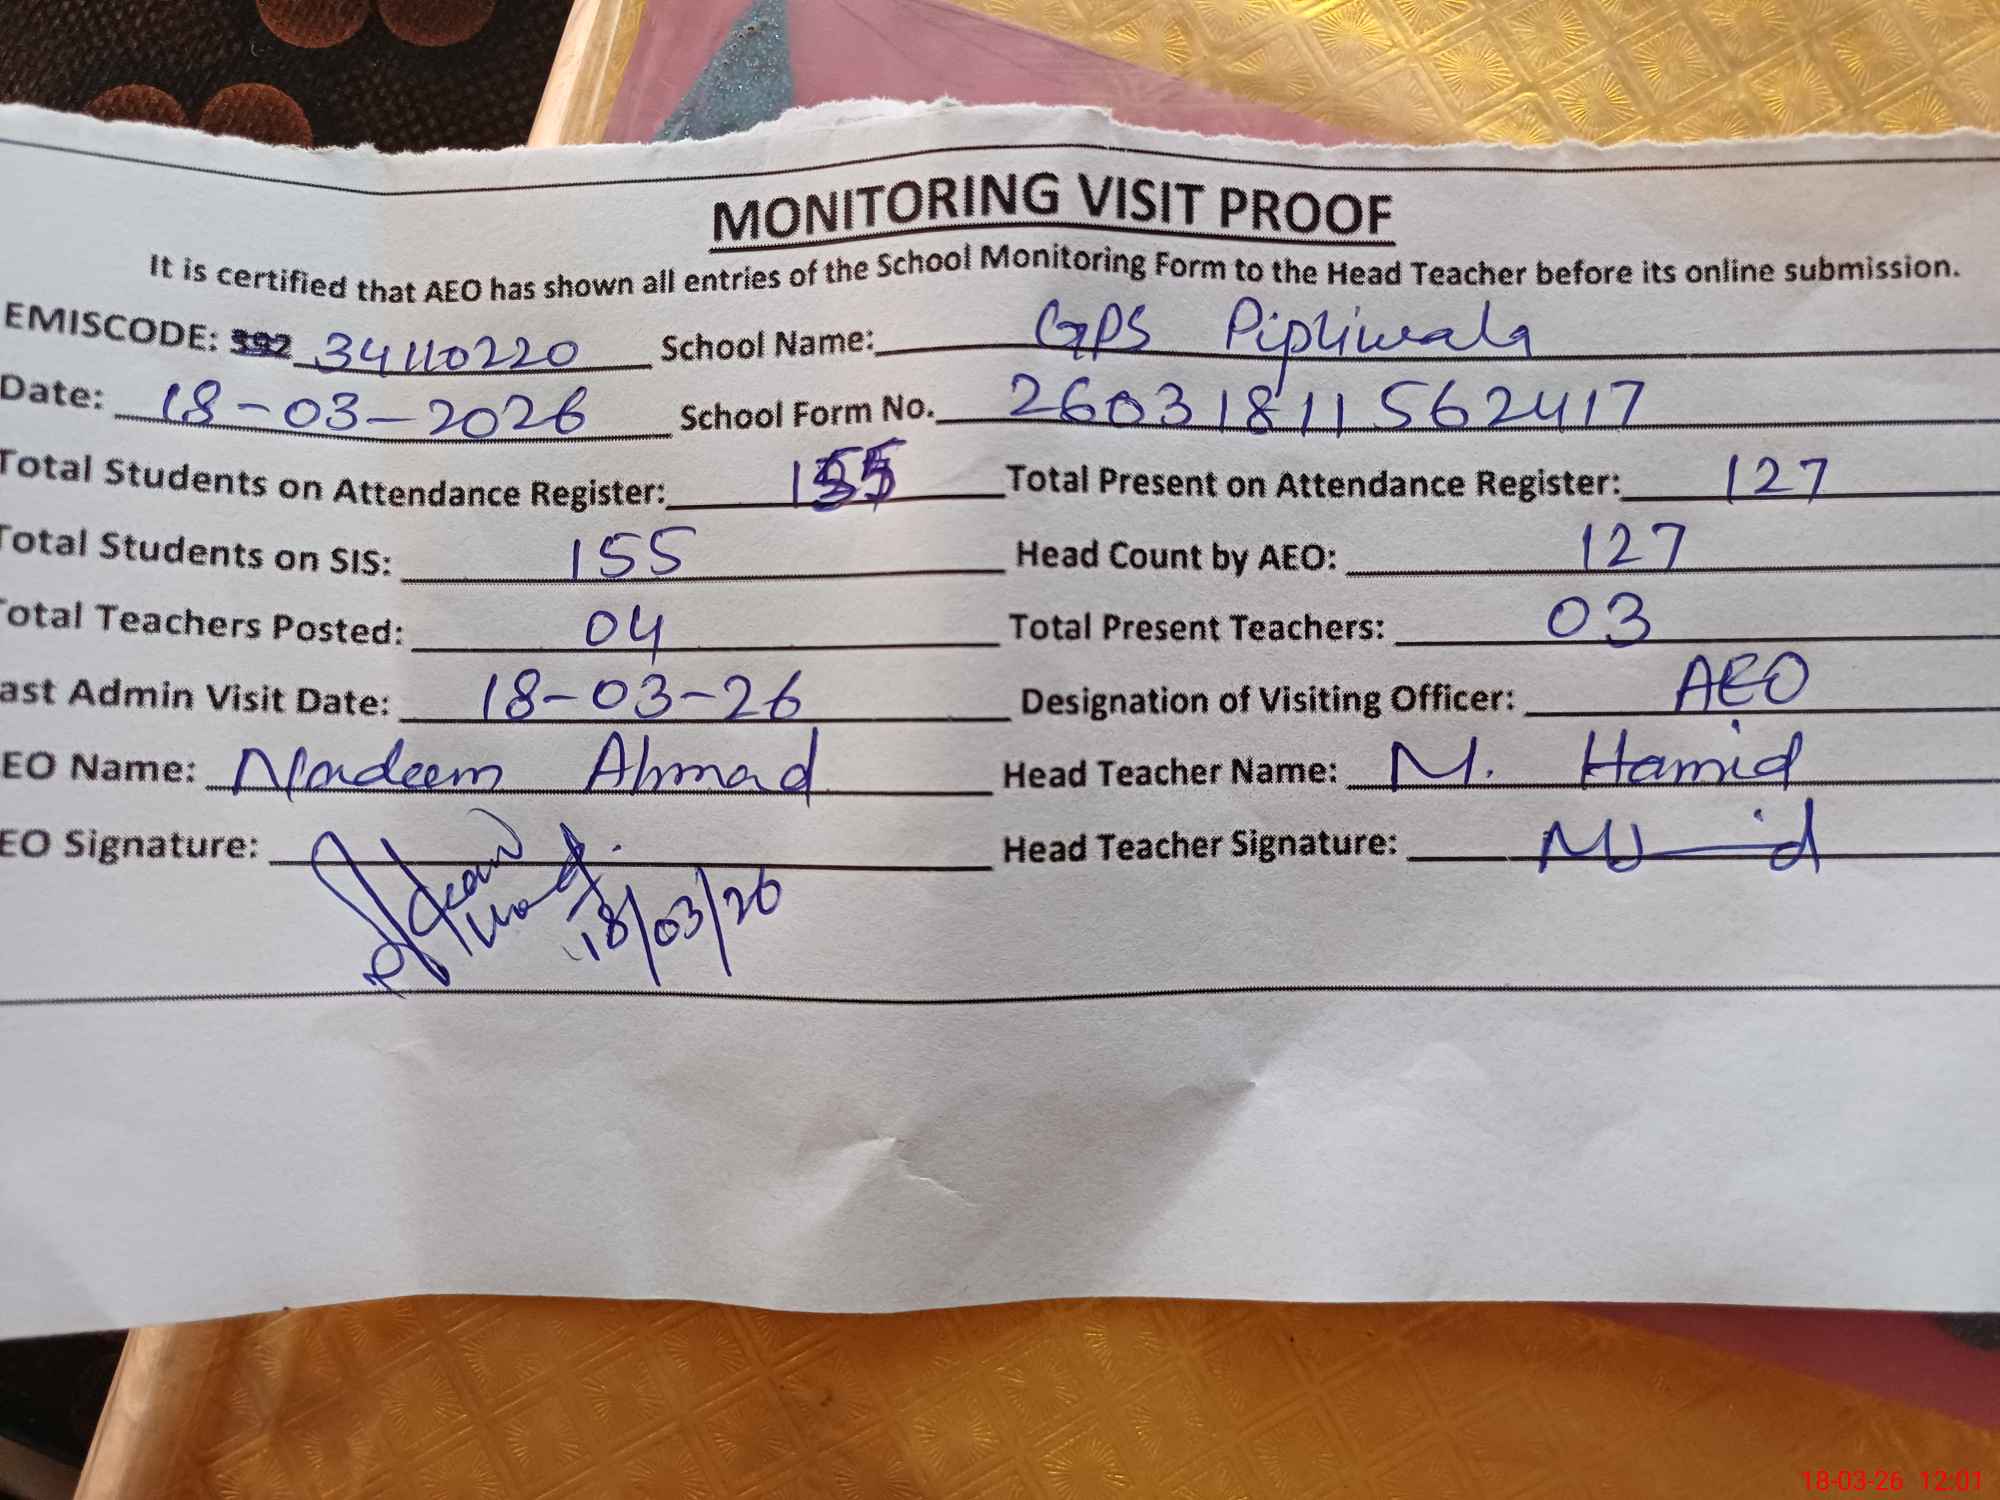 MONITORING VISIT PROOF
It is certified that AEO has shown all entries of the School Monitoring Form to the Head Teacher before its online submission.
EMISCODE: 34110220 School Name: GPS Pipliwala
Date: 18-03-2026 School Form No. 26031811562417
Total Students on Attendance Register: 155 Total Present on Attendance Register: 127
Total Students on SIS: 155 Head Count by AEO: 127
Total Teachers Posted: 04 Total Present Teachers: 03
ast Admin Visit Date: 18-03-26 Designation of Visiting Officer: AEO
EO Name: Nadeem Ahmad Head Teacher Name: M. Hamid
EO Signature: Head Teacher Signature:
18/03/26
18-03-26 12:01